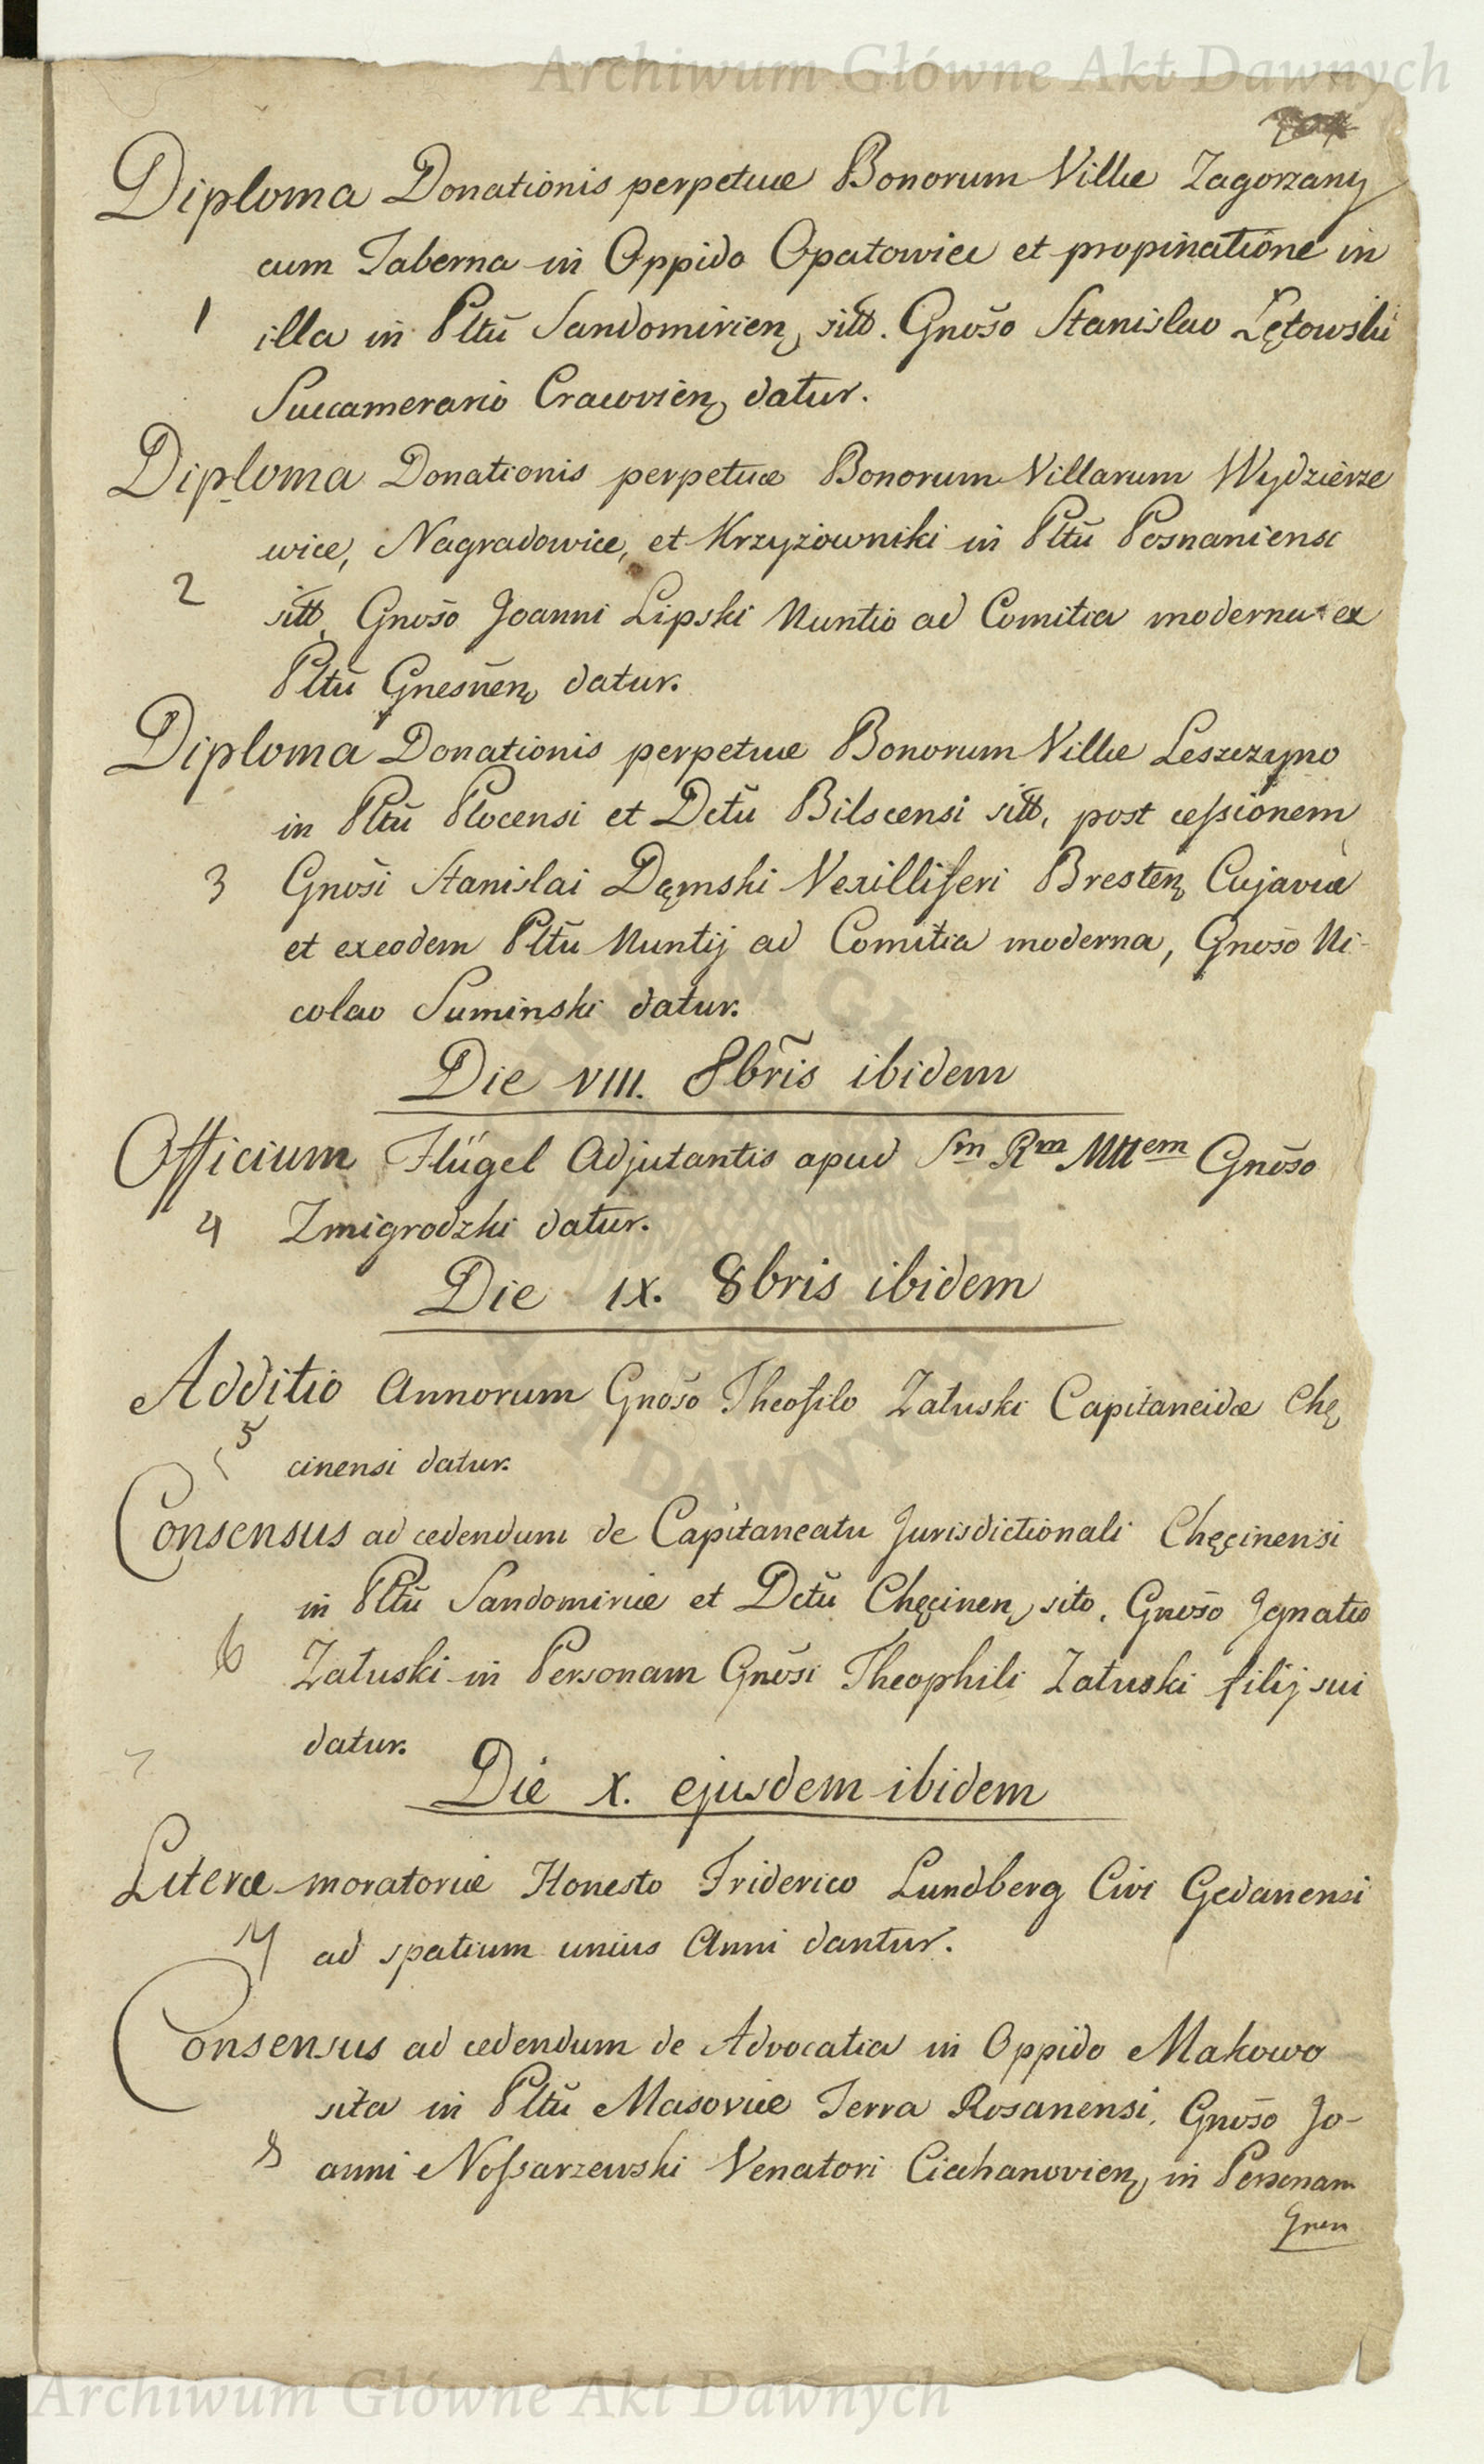 Archiwum Główne Akt Dawnych
Diploma Donationis perpetuæ Bonorum Villæ Zagorzany
cum Taberna in Oppido Opatowiec et propinatione in
1 illa in Pltũ Sandomirien, sitt. Gnõso Stanislao Łętowski
Succamerario Cracovien, datur.
Diploma Donationis perpetuæ Bonorum Villarum Wydzierze
wice, Nagradowice, et Krzyżowniki in Pltũ Posnaniensi
2 sitt, Gnõso Joanni Lipski Nuntio ad Comitia moderna ex
Pltũ Gnesñen, datur.
Diploma Donationis perpetuæ Bonorum Villæ Leszczyno
in Pltũ Plocensi et Dctũ Bilscensi sitt, post cessionem
3 Gnõsi Stanislai Dęmski Vexilliferi Bresten, Cujaviæ
et exeodem Pltũ Nuntij ad Comitia moderna, Gnõso Ni-
colao Suminski datur.
Die VIII. 8brĩs ibidem
Officium Flügel Adjutantis apud Sm Rm Mttem Gnõso
4 Zmigrodzki datur.
Die IX. 8bris ibidem
Additio Annorum Gnõso Theofilo Załuski Capitaneidæ Chę
5 cinensi datur.
Consensus ad cedendum de Capitaneatu Jurisdictionali Chęcinensi
in Pltũ Sandomiriæ et Dctũ Chęcinen, sito, Gnõso Ignatio
6 Załuski in Personam Gnõsi Theophili Załuski filij sui
datur.
Die X. ejusdem ibidem
Literæ moratoriæ Honesto Friderico Lundberg Civi Gedanensi
7 ad spatium unius Anni dantur.
Consensus ad cedendum de Advocatia in Oppido Makowo
sita in Pltũ Masoviæ Terra Rosanensi, Gnõso Jo-
8 anni Nossarzewski Venatori Ciechanovien, in Personam
Archiwum Główne Akt Dawnych